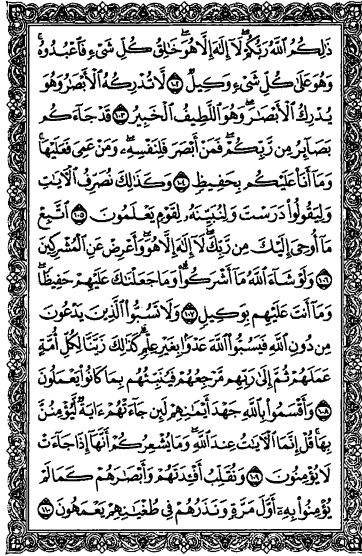 ذَٰلِكُمُ ٱللَّهُ رَبُّكُمْ ۖ لَآ إِلَٰهَ إِلَّا هُوَ ۖ خَٰلِقُ كُلِّ شَىْءٍ فَٱعْبُدُوهُ ۚ
وَهُوَ عَلَىٰ كُلِّ شَىْءٍ وَكِيلٌ ۝١٠٢ لَّا تُدْرِكُهُ ٱلْأَبْصَٰرُ وَهُوَ
يُدْرِكُ ٱلْأَبْصَٰرَ ۖ وَهُوَ ٱللَّطِيفُ ٱلْخَبِيرُ ۝١٠٣ قَدْ جَآءَكُم
بَصَآئِرُ مِن رَّبِّكُمْ ۖ فَمَنْ أَبْصَرَ فَلِنَفْسِهِۦ ۖ وَمَنْ عَمِىَ فَعَلَيْهَا ۚ
وَمَآ أَنَا۠ عَلَيْكُم بِحَفِيظٍ ۝١٠٤ وَكَذَٰلِكَ نُصَرِّفُ ٱلْءَايَٰتِ
وَلِيَقُولُوا۟ دَرَسْتَ وَلِنُبَيِّنَهُۥ لِقَوْمٍ يَعْلَمُونَ ۝١٠٥ ٱتَّبِعْ
مَآ أُوحِىَ إِلَيْكَ مِن رَّبِّكَ ۖ لَآ إِلَٰهَ إِلَّا هُوَ ۖ وَأَعْرِضْ عَنِ ٱلْمُشْرِكِينَ
۝١٠٦ وَلَوْ شَآءَ ٱللَّهُ مَآ أَشْرَكُوا۟ ۗ وَمَا جَعَلْنَٰكَ عَلَيْهِمْ حَفِيظًا ۖ
وَمَآ أَنتَ عَلَيْهِم بِوَكِيلٍ ۝١٠٧ وَلَا تَسُبُّوا۟ ٱلَّذِينَ يَدْعُونَ
مِن دُونِ ٱللَّهِ فَيَسُبُّوا۟ ٱللَّهَ عَدْوًۢا بِغَيْرِ عِلْمٍ ۗ كَذَٰلِكَ زَيَّنَّا لِكُلِّ أُمَّةٍ
عَمَلَهُمْ ثُمَّ إِلَىٰ رَبِّهِم مَّرْجِعُهُمْ فَيُنَبِّئُهُم بِمَا كَانُوا۟ يَعْمَلُونَ
۝١٠٨ وَأَقْسَمُوا۟ بِٱللَّهِ جَهْدَ أَيْمَٰنِهِمْ لَئِن جَآءَتْهُمْ ءَايَةٌ لَّيُؤْمِنُنَّ
بِهَا ۚ قُلْ إِنَّمَا ٱلْءَايَٰتُ عِندَ ٱللَّهِ ۖ وَمَا يُشْعِرُكُمْ أَنَّهَآ إِذَا جَآءَتْ
لَا يُؤْمِنُونَ ۝١٠٩ وَنُقَلِّبُ أَفْـِٔدَتَهُمْ وَأَبْصَٰرَهُمْ كَمَا لَمْ
يُؤْمِنُوا۟ بِهِۦٓ أَوَّلَ مَرَّةٍ وَنَذَرُهُمْ فِى طُغْيَٰنِهِمْ يَعْمَهُونَ ۝١١٠